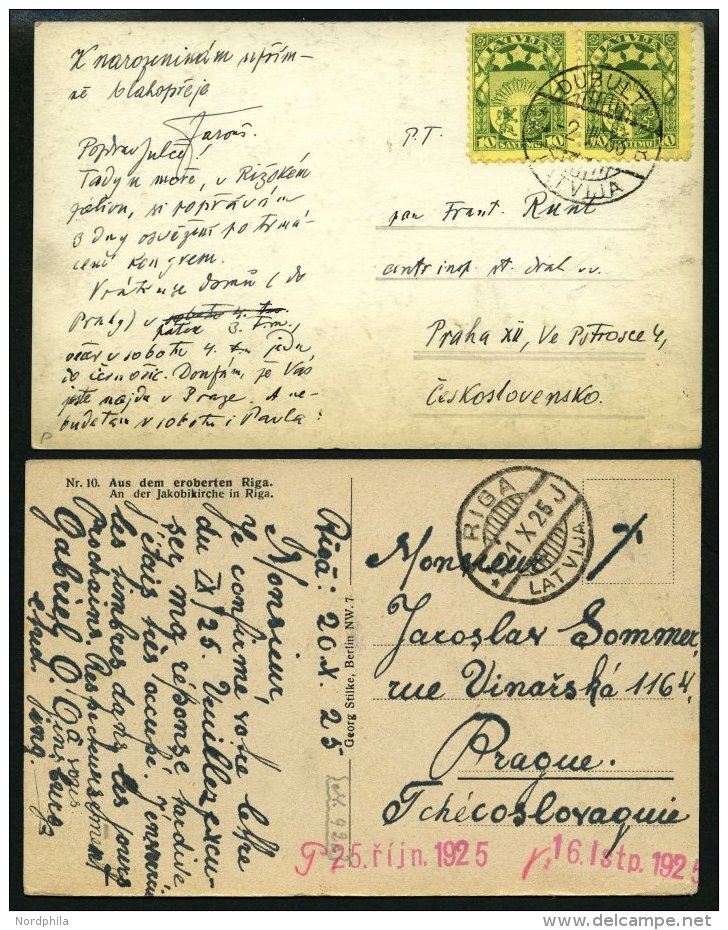 K narozeninám upřím-
ně blahopřeje
Jarouš.
Tady u moře, v Rižském
zálivu, si popřávám
3 dny osvěžení po
kongresu.
domů (do
Prahy) v
pátek 3.
v sobotu 4. jedu
do Černošic. Doufám, že Vás
ještě najdu v Praze. A ne-
budete tam v sobotu i Pavla?
P
P.T.
LATVIJA LATVIJA
DUBULTI
LATVIJA
pan Frant. Runt
centr. insp. st. drah v.v.
Praha XII, Ve Pštrosce 4,
Československo.
Nr. 10. Aus dem eroberten Riga.
An der Jakobikirche in Riga.
Riga: 20.X.25
Monsieur
Je confirme votre lettre
du IX/25. Veuillez excu-
ser ma réponse tardive
j'étais très occupé. J'enverrai
les timbres dans les jours
prochains. Respectueusement
à vous
Gabriel O. Ginsburg
Georg Stilke, Berlin NW. 7
RIGA
21 X 25 J
LATVIJA
Monsieur
Jaroslav Sommer,
rue Vinařská 1164,
Prague.
Tchécoslovaquie
25. říjn. 1925
16. lstp. 1925
Nordphila
delcampe.net